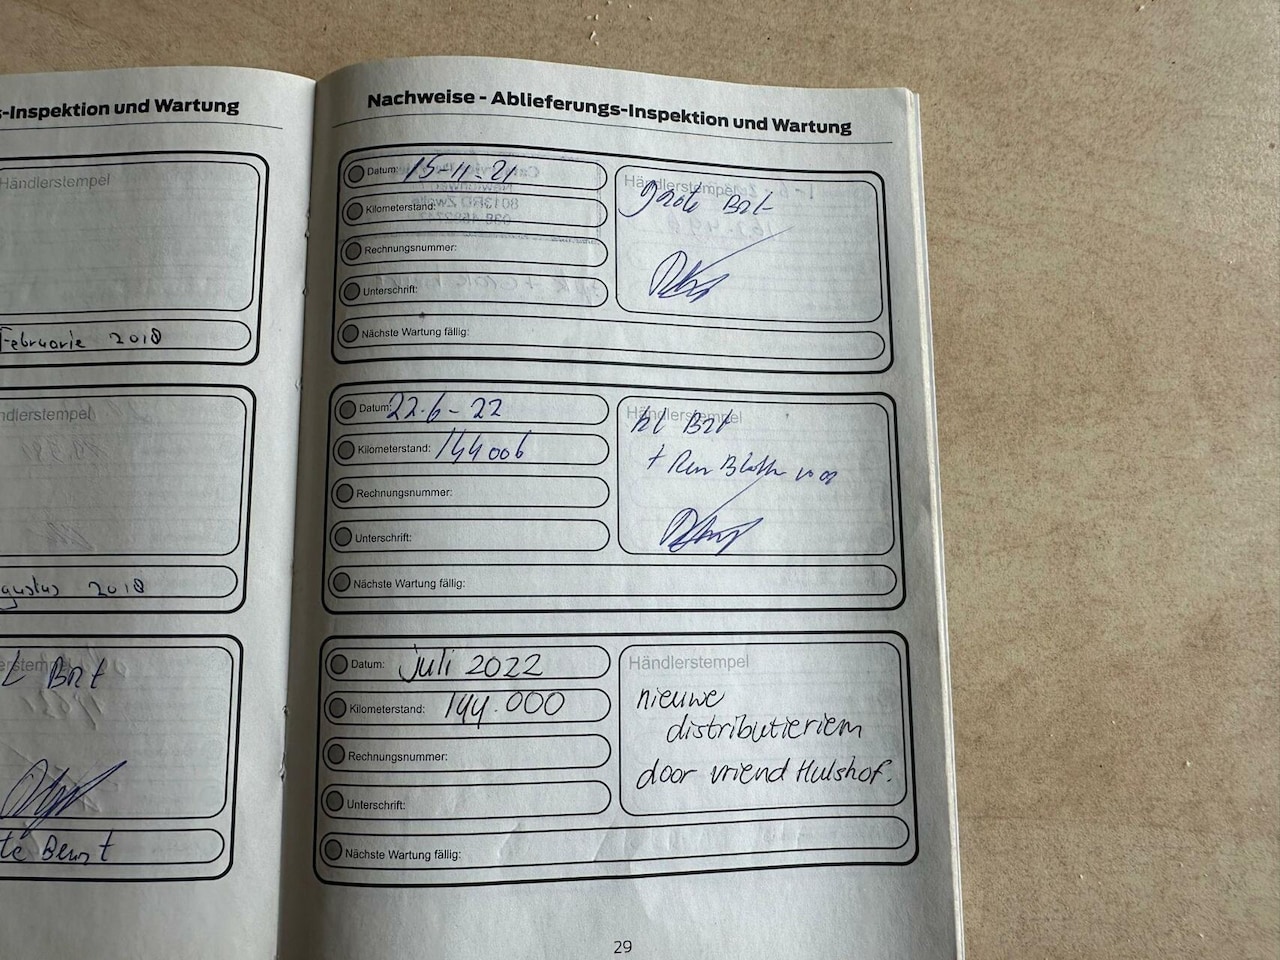 -Inspektion und Wartung
Händlerstempel
Februarie 2018
ndlerstempel
gustus 2018
erstempel
Bnt
te Beurt
Nachweise - Ablieferungs-Inspektion und Wartung
Datum: 15-11-21
Kilometerstand:
Rechnungsnummer:
Unterschrift:
Nächste Wartung fällig:
Händlerstempel
grote Bnt
Datum: 22-6-22
Kilometerstand: 144006
Rechnungsnummer:
Unterschrift:
Nächste Wartung fällig:
Händlerstempel
kl Bnt
+ Rem
Datum: Juli 2022
Kilometerstand: 144.000
Rechnungsnummer:
Unterschrift:
Nächste Wartung fällig:
Händlerstempel
nieuwe
distributieriem
door vriend Hulshof.
29